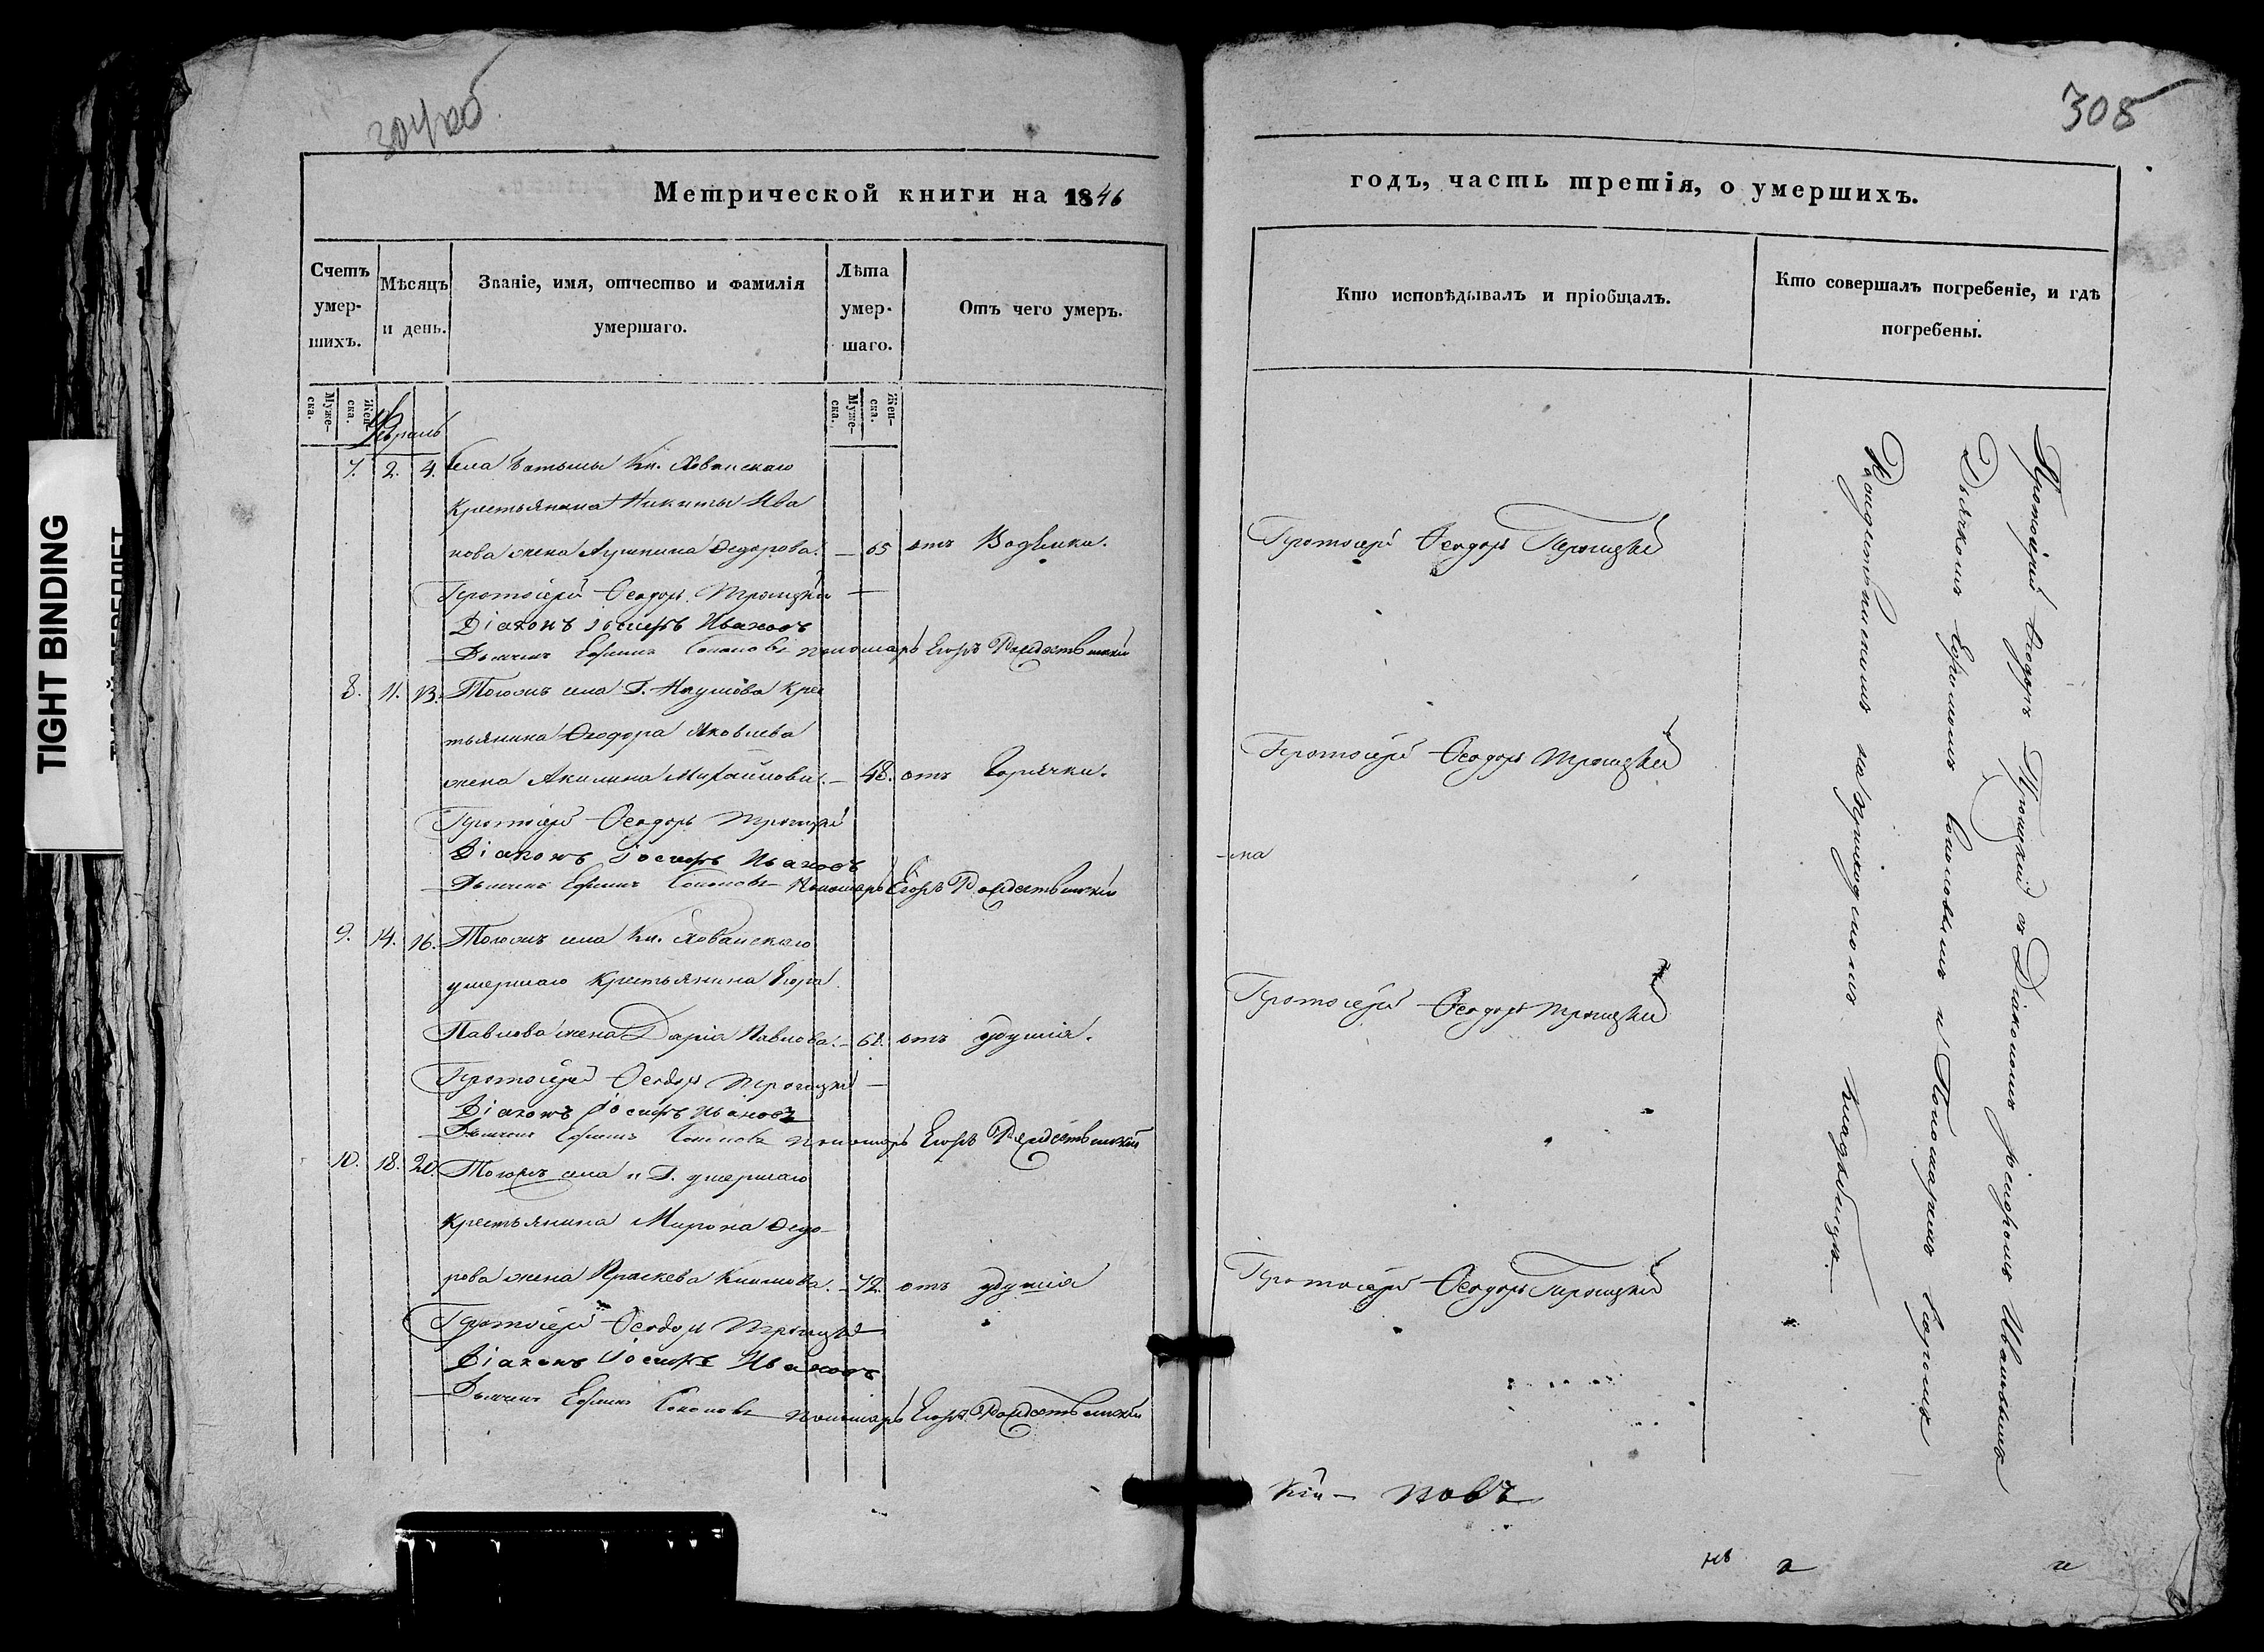 304об
308
TIGHT BINDING
Метрической книги на 1846
годъ, часть третія, о умершихъ.
Счетъ умер-шихъ.
Мѣсяцъ и день.
Званіе, имя, отчество и фамилія умершаго.
Лѣта умер-шаго.
Отъ чего умеръ.
Кто исповѣдывалъ и пріобщалъ.
Кто совершалъ погребеніе, и гдѣ погребены.
Муже-ска.
Жен-ска.
Муже-ска.
Жен-ска.
Февраль
7. 2. 4. Села Кн. Хованскаго
крестьянина Никиты Ива
нова жена Федорова. — 65 отъ Водянки.
Протоіерей Феодоръ Троицкій
Протоіерей Феодоръ Троицкій —
Діаконъ Іосифъ Ивановъ
Дьячекъ Ефимъ Сокоповъ пономарь Егоръ Рождественскій
8. 11. 13. Тогожъ села Г. Наумова Крес
тьянина Феодора Яковлева
жена Акилина Михайлова. — 48. отъ Горячки.
Протоіерей Феодоръ Троицкій
Протоіерей Феодоръ Троицкій
Діаконъ Іосифъ Ивановъ
Дьячекъ Ефимъ пономарь Егоръ Рождественскій
9. 14. 16. Тогожъ села Кн. Хованскаго
умершаго крестьянина Егора
Павлова жена Дарія Павлова. — 62. отъ удушія.
Протоіерей Феодоръ Троицкій
Протоіерей Феодоръ Троицкій —
Діаконъ Іосифъ Ивановъ
Дьячекъ Ефимъ пономарь Егоръ Рождественскій
10. 18. 20. Тогожъ села и Г. умершаго
крестьянина Мирона Федо
рова жена Праскева Климова. — 72. отъ удушія
Протоіерей Феодоръ Троицкій
Протоіерей Феодоръ Троицкій
Діаконъ Іосифъ Ивановъ
Дьячекъ Ефимъ пономарь Егоръ Рождественскій
Протоіерей Феодоръ Троицкій съ Діакономъ Іосифомъ Ивановымъ
Дьячкомъ Ефимомъ и Пономаремъ Егоромъ
Рождественскимъ на приходскомъ кладбищѣ. —